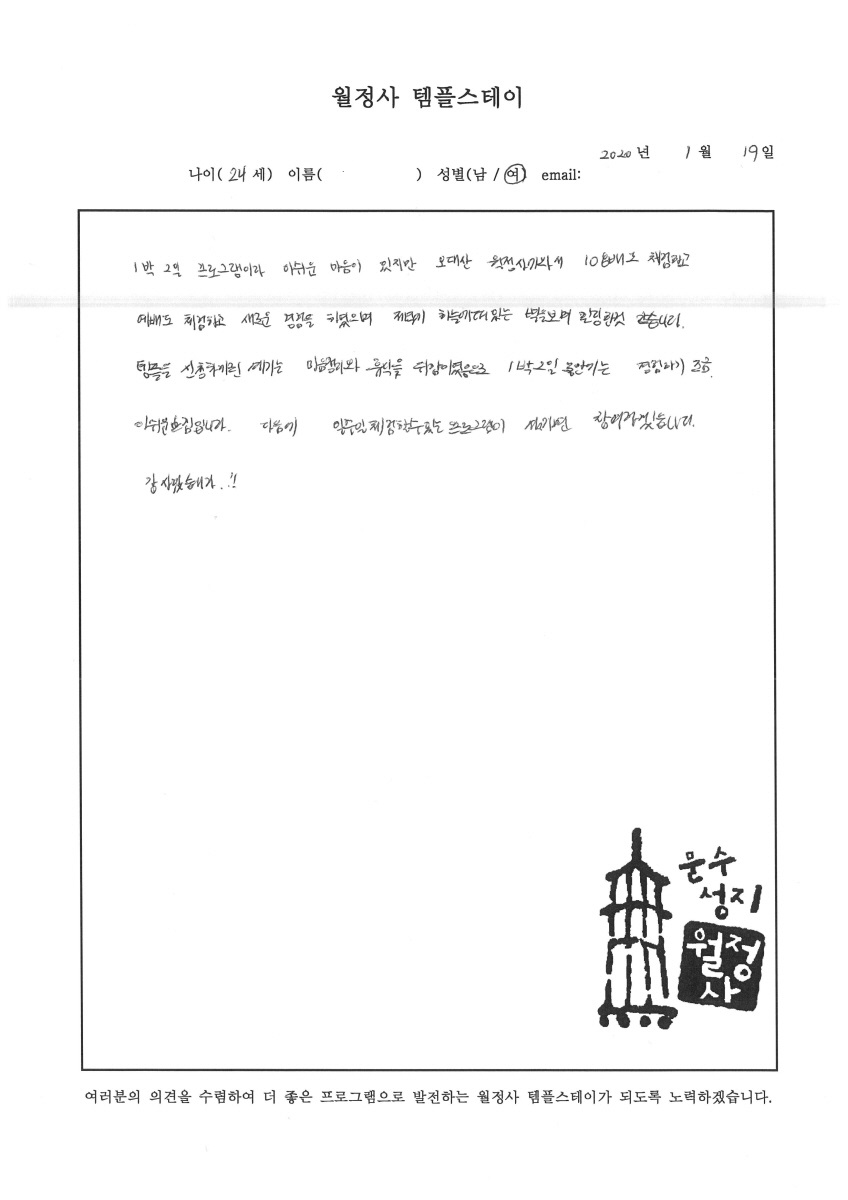 월정사 템플스테이
2020년 1월 19일
나이(24세) 이름( ) 성별(남 / 여) email:
1박 2일 프로그램이라 아쉬운 마음이 있지만 오대산 월정사가와서 108배도 체험하고
예배도 체험하고 새로운 경험을 하였으며 하늘가 있는 별을보며 힐링한것 같습니다.
템플을 신청하기된 계기는 마음챙김와 휴식을 1박2일 동안가는 경험하기 조금
아쉬운느낌입니다. 다음에 일주일체험할수있는 프로그램이 생기면 참여하겠습니다.
감사했습니다..!!
문수
성지
월정
사
여러분의 의견을 수렴하여 더 좋은 프로그램으로 발전하는 월정사 템플스테이가 되도록 노력하겠습니다.